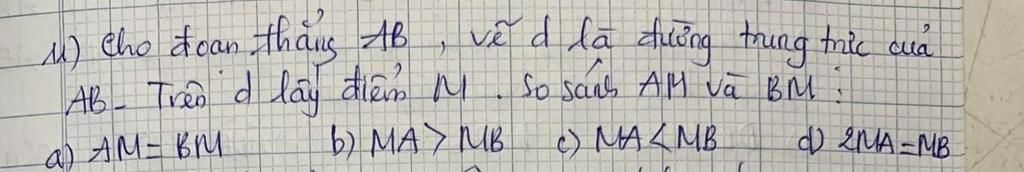 11) Cho đoạn thẳng AB, vẽ d là đường trung trực của
AB. Trên d lấy điểm M. So sánh AM và BM:
a) AM = BM b) MA > MB c) MA < MB d) 2MA = MB